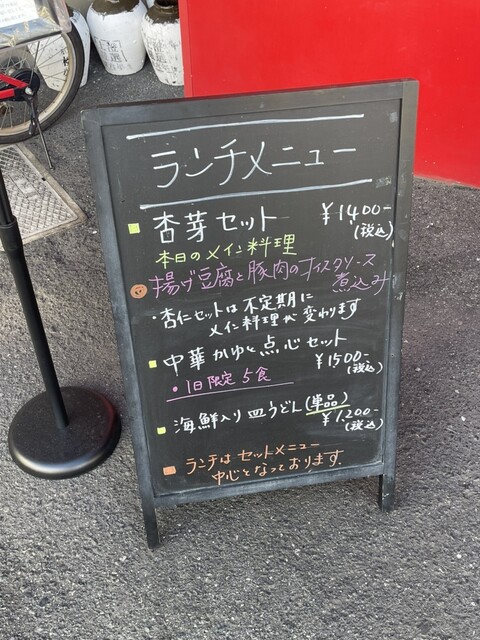 ランチメニュー
杏芽セット ¥1400-
(税込)
本日のメイン料理
揚げ豆腐と豚肉のオイスターソース
煮込み
・杏仁セットは不定期に
メイン料理が変わります
中華かゆと点心セット
¥1500-
(税込)
・1日限定5食
海鮮入り皿うどん(単品)
¥1,200-
(税込)
ランチはセットメニュー
中心となっております.